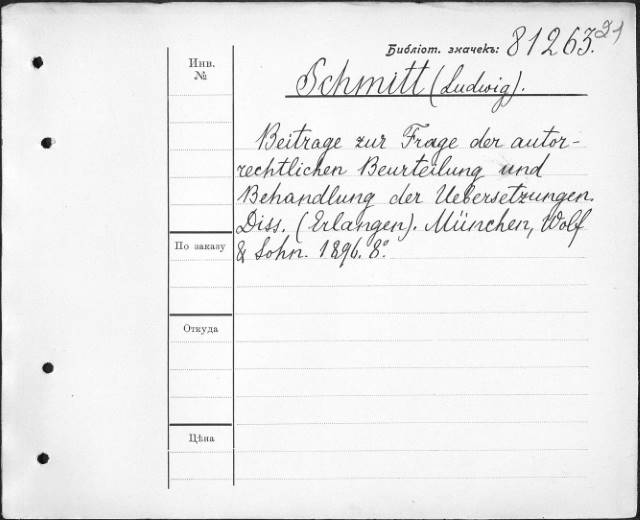 Библіот. значекъ: 81263.21
Инв.
№
Schmitt (Ludwig).
Beitrage zur Frage der autor-
rechtlichen Beurteilung und
Behandlung der Uebersetzungen.
Diss. (Erlangen). München, Wolf
& Sohn. 1896. 8.°
По заказу
Откуда
Цѣна